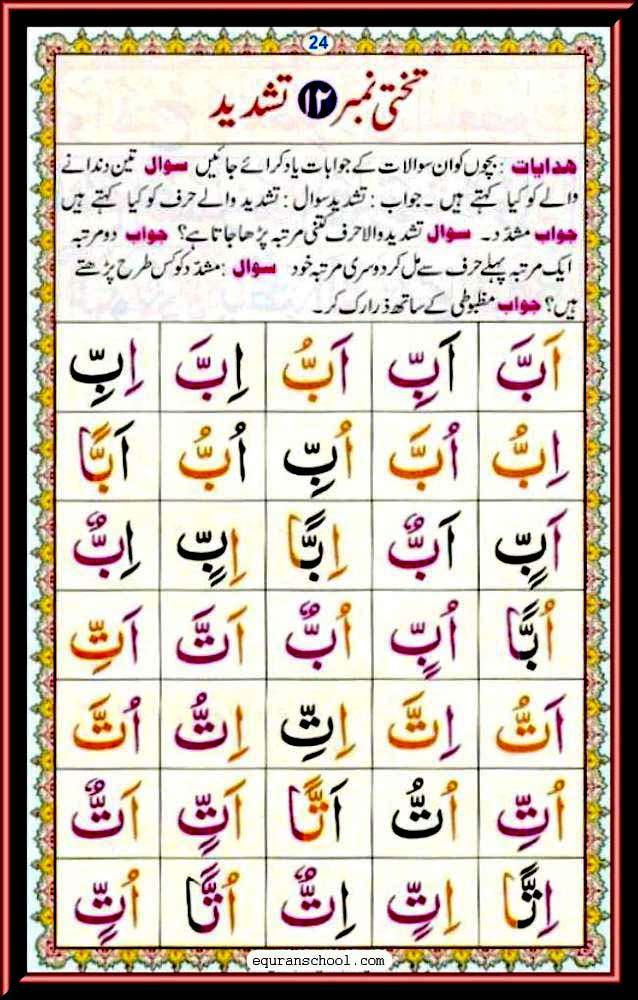 24
تختی نمبر ۱۲ تشدید
ھدایات : بچوں کو ان سوالات کے جوابات یاد کرائے جائیں سوال تین دندانے
والے کو کیا کہتے ہیں ۔ جواب : تشدید سوال : تشدید والے حرف کو کیا کہتے ہیں
جواب مشدّد ۔ سوال تشدید والا حرف کتنی مرتبہ پڑھا جاتا ہے؟ جواب دو مرتبہ
ایک مرتبہ پہلے حرف سے مل کر دوسری مرتبہ خود سوال : مشدّد کو کس طرح پڑھتے
ہیں؟ جواب مظبوطی کے ساتھ ذرا رک کر۔
اَبَّ اَبِّ اَبُّ اِبَّ اِبِّ
اِبُّ اُبَّ اُبِّ اُبُّ اَبًّا
اَبٍّ اَبٌّ اِبًّا اِبٍّ اِبٌّ
اُبًّا اُبٍّ اُبٌّ اَتَّ اَتِّ
اَتُّ اِتَّ اِتِّ اِتُّ اُتَّ
اُتِّ اُتُّ اَتًّا اَتٍّ اَتٌّ
اِتًّا اِتٍّ اِتٌّ اُتًّا اُتٍّ
equranschool.com